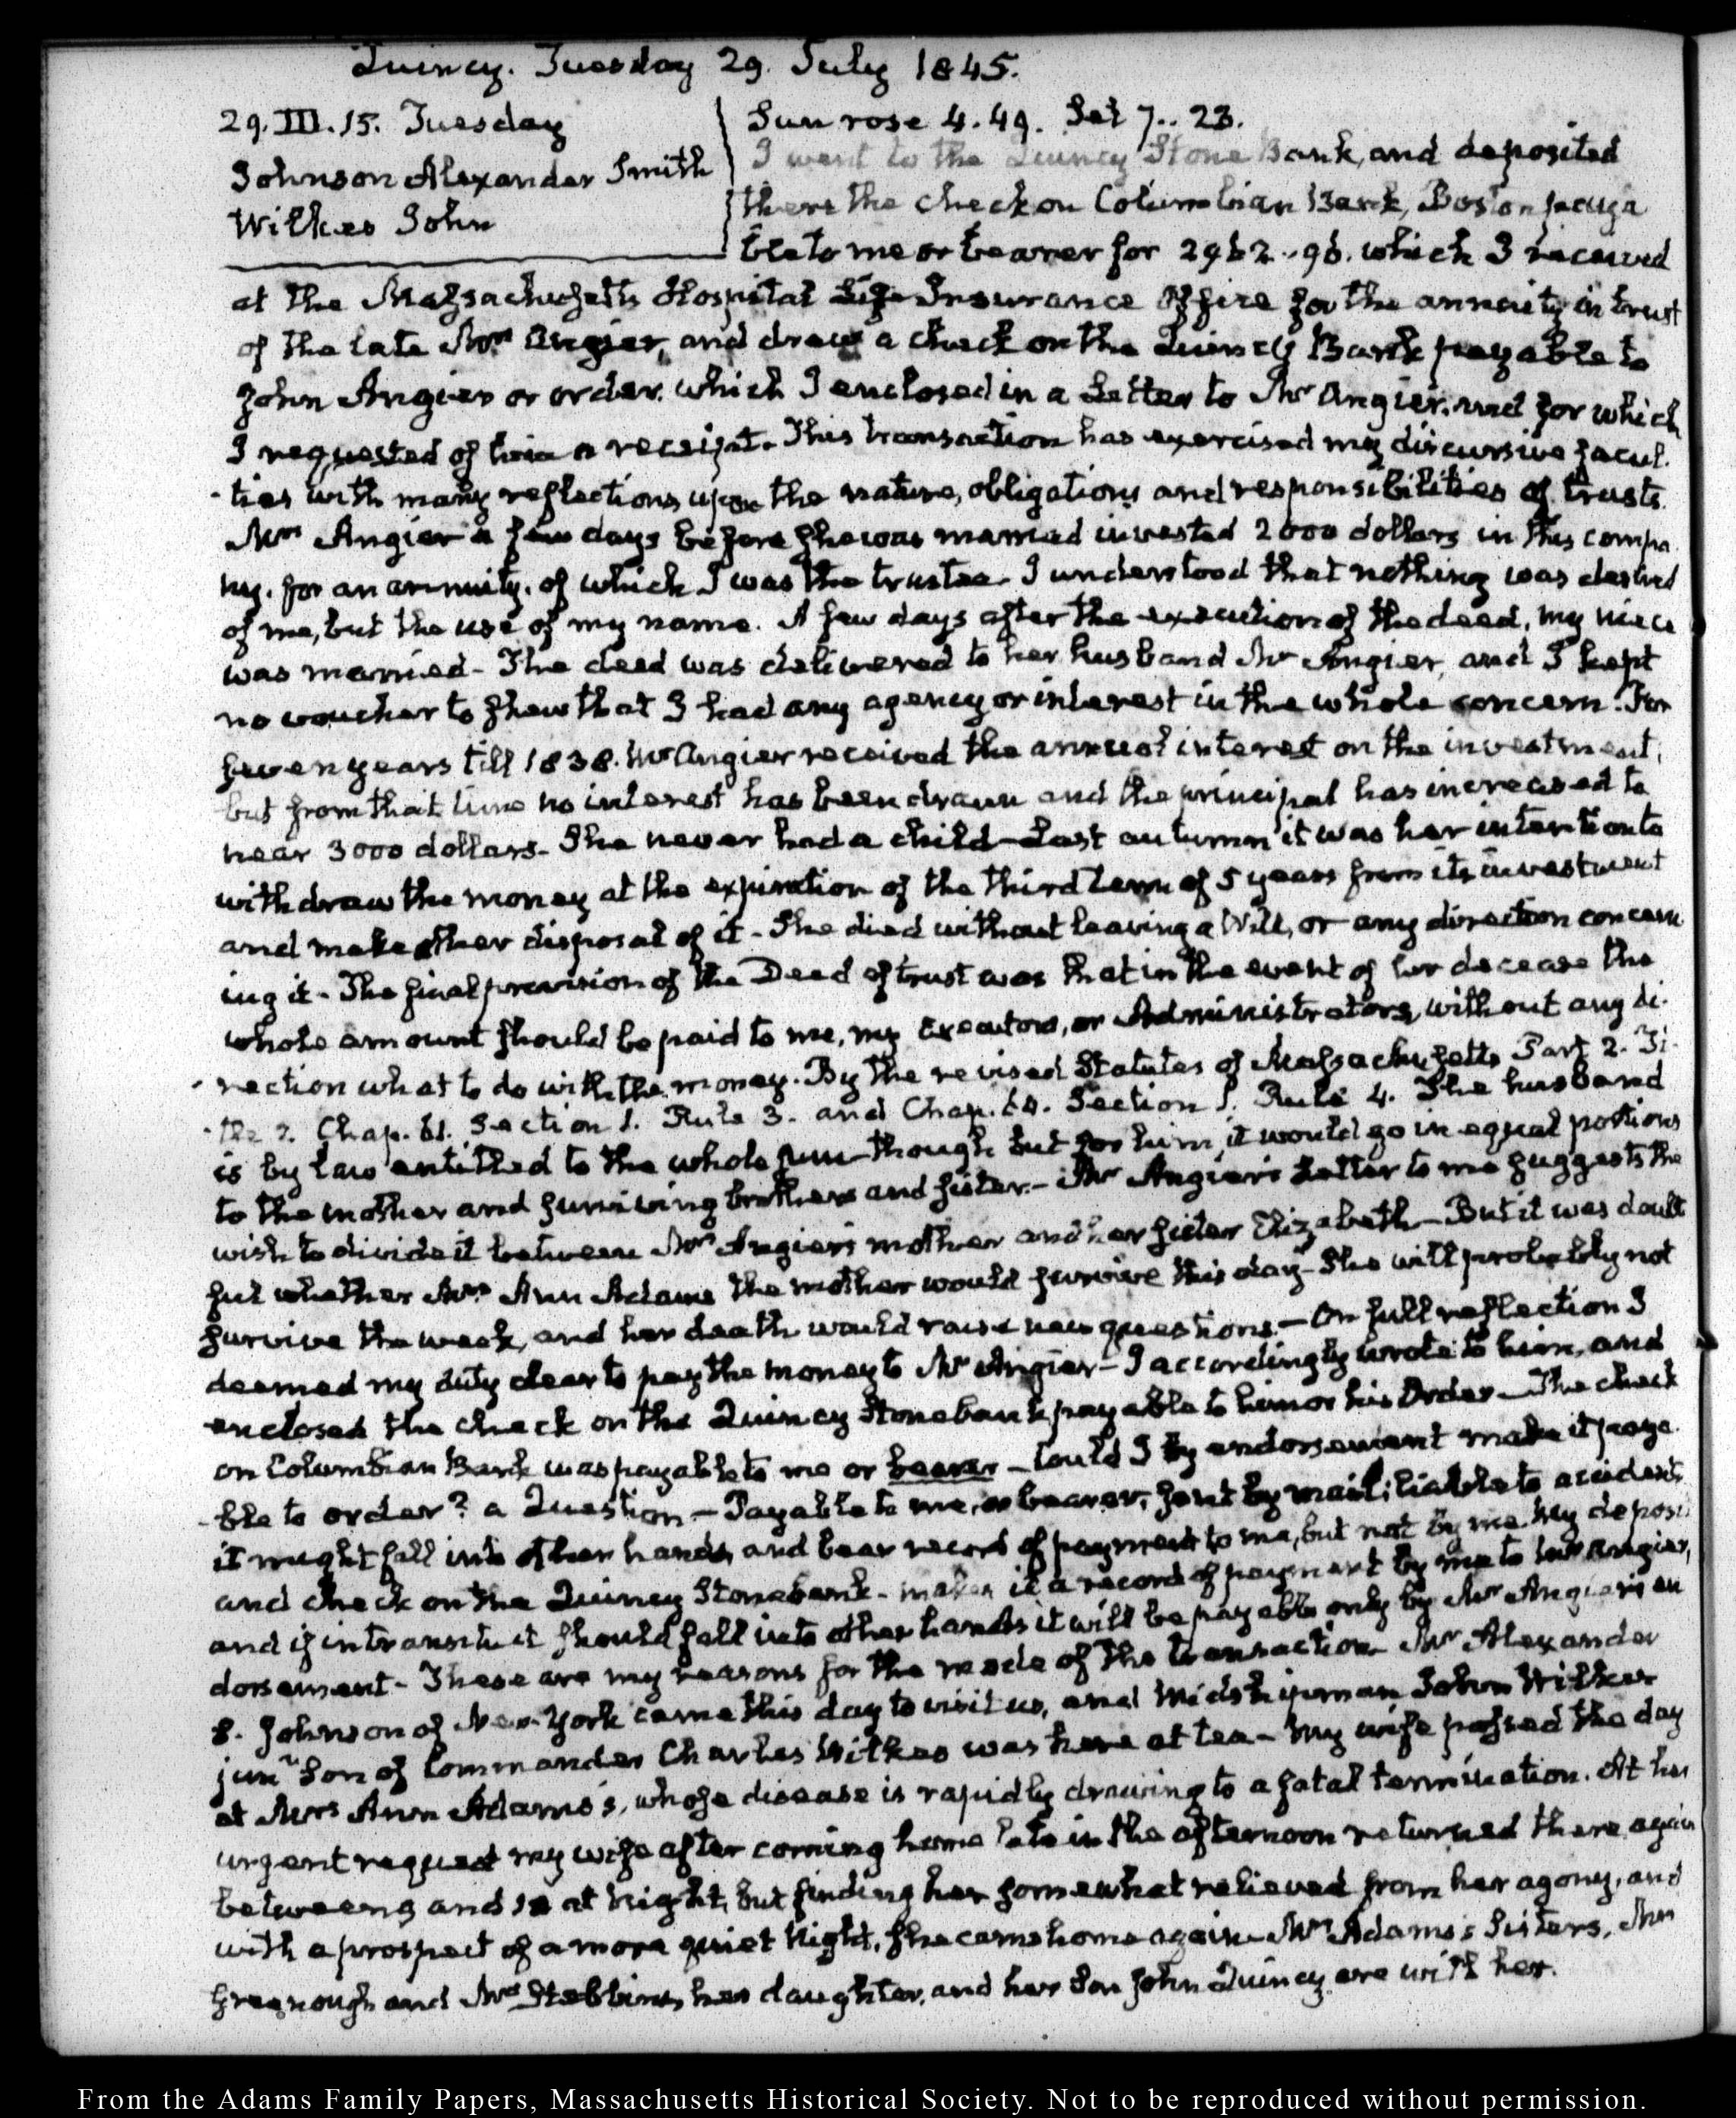 Quincy. Tuesday 29. July 1845.
29. III. 15. Tuesday
Johnson Alexander Smith
Wilkes John
Sun rose 4.49. Set 7..23.
I went to the Quincy Stone Bank, and deposited
there the check on Columbian Bank, Boston paya
ble to me or bearer for which I received
at the Massachusetts Hospital Life Insurance Office for the annuity in trust
of the late Mrs Angier, and drew a check on the Quincy Bank payable to
John Angier or order. which I enclosed in a Letter to Mr Angier. and for which
I requested of him a receipt. This transaction has exercised my discursive facul-
-ties with many reflections upon the nature, obligations and responsibilities of trusts.
Mrs Angier a few days before she was married invested 2000 dollars in this compa
ny. for an annuity. of which I was the trustee. I understood that nothing was desired
of me, but the use of my name. A few days after the execution of the deed, my niece
was married - The deed was delivered to her husband Mr Angier, and I kept
no voucher to shew that I had any agency or interest in the whole concern. For
seven years till 1838. Mr Angier received the annual interest on the investment,
but from that time no interest has been drawn and the principal has increased to
near 3000 dollars - She never had a child - Last autumn it was her intention to
withdraw the money at the expiration of the third term of 5 years from its investment
and make other disposal of it - She died without leaving a Will, or any direction concern
ing it - The final provision of the Deed of trust was that in the event of her decease the
whole amount should be paid to me, my Executors, or Administrators, without any di-
-rection what to do with the money. By the revised Statutes of Massachusetts Part 2. Ti-
-tle Chap. 61. Section 1. Rule 3. and Chap. 64. Section 1. Rule 4. The husband
is by law entitled to the whole sum - though but for him, it would go in equal portions
to the mother and surviving brothers and sister. - Mr Angier's Letter to me suggests the
wish to divide it between Mrs Angier's mother and her sister Elizabeth - But it was doubt
ful whether Mrs Ann Adams the mother would survive this day - She will probably not
survive the week, and her death would raise new questions. - On full reflection I
deemed my duty clear to pay the money to Mr Angier - I accordingly wrote to him, and
enclosed the check on the Quincy Stone bank payable to him or his Order - The check
on Columbian Bank was payable to me or bearer - Could I by endorsement make it paya-
-ble to order? a Question - Payable to me, or bearer, sent by mail, liable to accidents
it might fall into other hands, and bear record of payment to me, but not by me. My deposit
and check on the Quincy Stone bank - makes it a record of payment by me to Mr Angier,
and if in transitu it should fall into other hands it will be payable only by Mr Angier's en
dorsement - These are my reasons for the mode of the transaction - Mr Alexander
S. Johnson of New-York came this day to visit us, and Midshipman John Wilkes
junr Son of Commander Charles Wilkes was here at tea - My wife passed the day
at Mrs Ann Adams's, whose disease is rapidly drawing to a fatal termination. At her
urgent request my wife after coming home late in the afternoon returned there again
between 9 and 10 at Night, but finding her somewhat relieved from her agony, and
with a prospect of a more quiet Night, she came home again - Mrs Adams's Sisters, Mrs
Greenough and Mrs Stebbins, her daughter, and her Son John Quincy are with her.
From the Adams Family Papers, Massachusetts Historical Society. Not to be reproduced without permission.